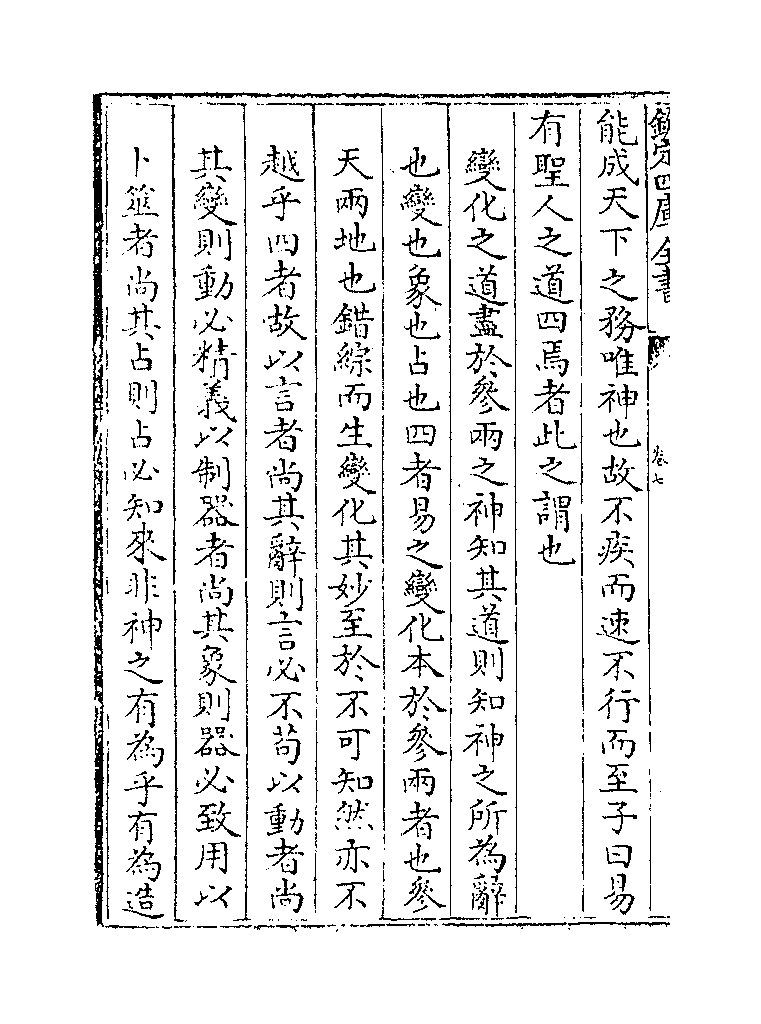 欽定四庫全書
卷七
能成天下之務唯神也故不疾而速不行而至子曰易
有聖人之道四焉者此之謂也
變化之道盡於參兩之神知其道則知神之所為辭
也變也象也占也四者易之變化本於參兩者也參
天兩地也錯綜而生變化其妙至於不可知然亦不
越乎四者故以言者尚其辭則言必不苟以動者尚
其變則動必精義以制器者尚其象則器必致用以
卜筮者尚其占則占必知來非神之有為乎有為造